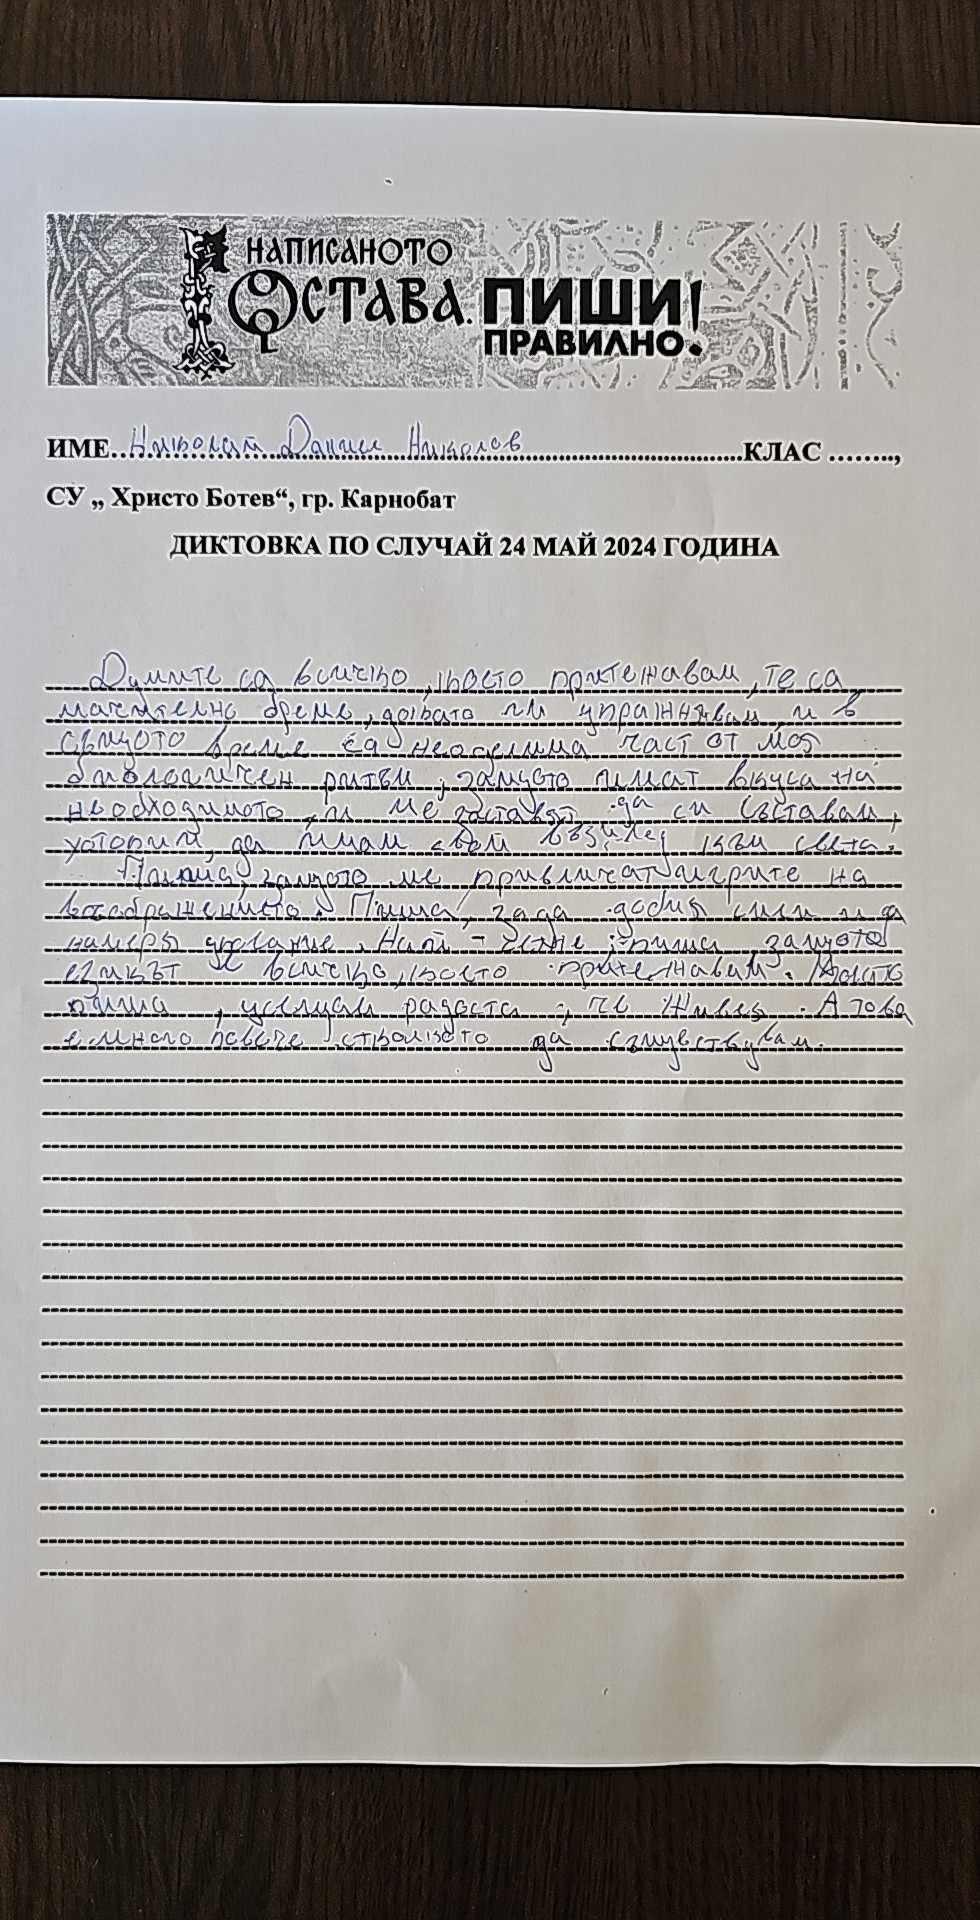 НАПИСАНОТО
ОСТАВА. ПИШИ
ПРАВИЛНО!
ИМЕ..Николай Даниел Николов..........КЛАС ........,
СУ „ Христо Ботев“, гр. Карнобат
ДИКТОВКА ПО СЛУЧАЙ 24 МАЙ 2024 ГОДИНА
Думите са всичко, което притежавам, те са
време, когато ги упражнявам и в
същото време са неоделима част от моя
биологичен ритъм, защото имат вкуса на
необходимото, и ме заставят да си съставям,
да имам свой към света.
Пиша, защото ме привличат игрите на
Пиша, за да добия сили и да
намеря упование. Най - вече, пиша защото
езикът е всичко, което притежавам. Когато
пиша, усещам радостта, че живея. А това
е много повече, отколкото да съществувам.